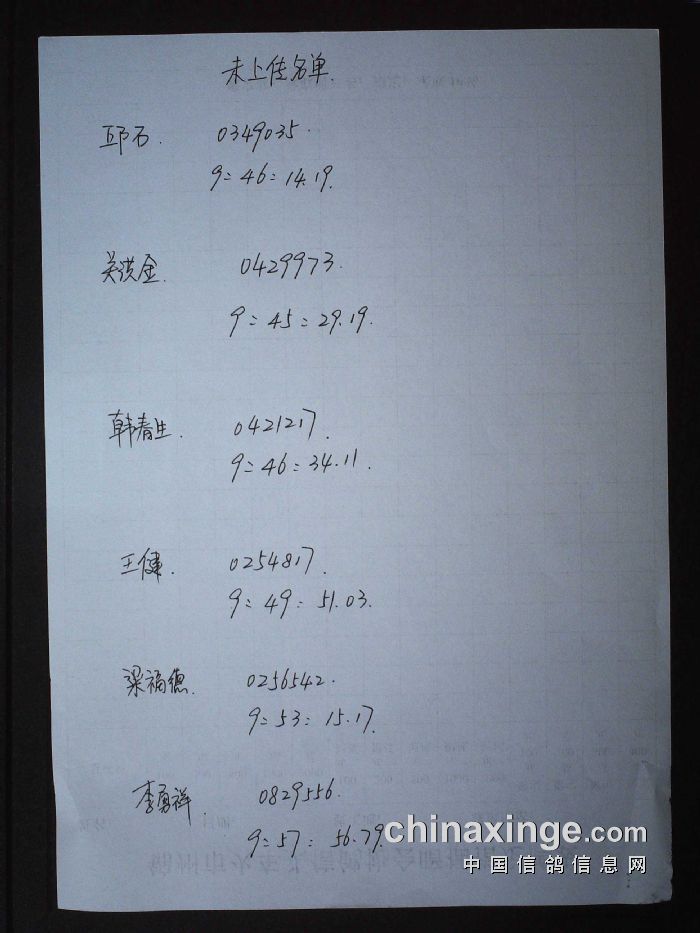 未上传名单.
邱石. 0349035.
9:46:14.19.
关洪金. 0429973.
9:45:29.19.
韩春生. 0421217.
9:46:34.11.
王健. 0254817.
9:49:51.03.
梁福德. 0256542.
9:53:15.17.
李勇祥. 0829556.
9:57:56.79.
chinaxinge.com
中国信鸽信息网